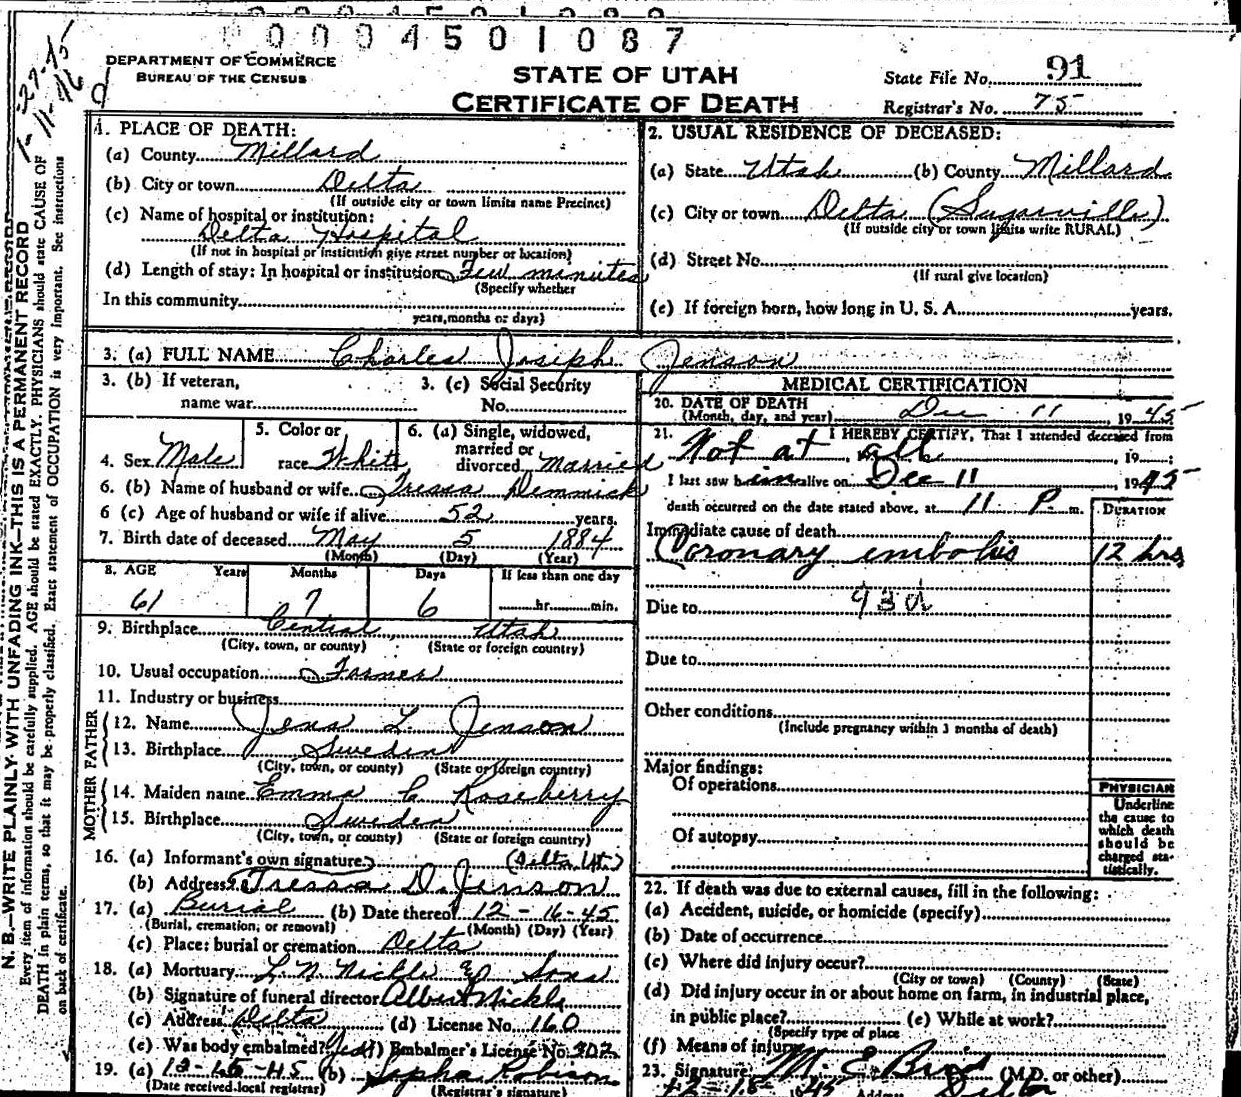 0004501087
DEPARTMENT OF COMMERCE
BUREAU OF THE CENSUS
STATE OF UTAH
CERTIFICATE OF DEATH
State File No. 91
Registrar's No. 75
1. PLACE OF DEATH:
(a) County Millard
(b) City or town Delta
(If outside city or town limits name Precinct)
(c) Name of hospital or institution:
Delta Hospital
(If not in hospital or institution give street number or location)
(d) Length of stay: In hospital or institution Few minutes
(Specify whether
In this community
years, months or days)
2. USUAL RESIDENCE OF DECEASED:
(a) State Utah (b) County Millard
(c) City or town Delta (Sugarville)
(If outside city or town limits write RURAL)
(d) Street No.
(If rural give location)
(e) If foreign born, how long in U. S. A. years.
3. (a) FULL NAME Charles Joseph Jenson
3. (b) If veteran, name war
3. (c) Social Security No.
4. Sex Male
5. Color or race White
6. (a) Single, widowed, married or divorced Married
6. (b) Name of husband or wife Tressa Dimmick
6 (c) Age of husband or wife if alive 52 years.
7. Birth date of deceased May 5 1884
(Month) (Day) (Year)
8. AGE Years Months Days If less than one day
61 7 6 hr. min.
9. Birthplace Central Utah
(City, town, or county) (State or foreign country)
10. Usual occupation Farmer
11. Industry or business
FATHER
12. Name Jens L. Jenson
13. Birthplace Sweden
(City, town, or county) (State or foreign country)
MOTHER
14. Maiden name Emma C Roseberry
15. Birthplace Sweden
(City, town, or county) (State or foreign country)
16. (a) Informant's own signature (Delta Ut.)
(b) Address Tressa D. Jenson
17. (a) Burial (b) Date thereof 12-16-45
(Burial, cremation, or removal) (Month) (Day) (Year)
(c) Place: burial or cremation Delta
18. (a) Mortuary L. N. Nickle & Sons
(b) Signature of funeral director Albert Nickle
(c) Address Delta (d) License No. 160
(e) Was body embalmed? Yes (f) Embalmer's License No. 302
19. (a) 12-15-45 (b) Robison
(Date received local registrar) (Registrar's signature)
MEDICAL CERTIFICATION
20. DATE OF DEATH
(Month, day, and year) Dec 11 1945
21. I HEREBY CERTIFY, That I attended deceased from
Not at all , 19 ;
I last saw him alive on Dec 11 1945
death occurred on the date stated above, at 11 P. m.
DURATION
Immediate cause of death
Coronary embolis 12 hrs
Due to 93d
Due to
Other conditions
(Include pregnancy within 3 months of death)
Major findings:
Of operations
Of autopsy
PHYSICIAN
Underline
the cause to
which death
should be
charged sta-
tistically.
22. If death was due to external causes, fill in the following:
(a) Accident, suicide, or homicide (specify)
(b) Date of occurrence
(c) Where did injury occur?
(City or town) (County) (State)
(d) Did injury occur in or about home on farm, in industrial place,
in public place? (e) While at work?
(Specify type of place
(f) Means of injury
23. Signature M. E. Bird (M.D. or other)
12-15-45 Address Delta
N. B.—WRITE PLAINLY WITH UNFADING INK—THIS IS A PERMANENT RECORD
Every item of information should be carefully supplied. AGE should be stated EXACTLY. PHYSICIANS should state CAUSE OF
DEATH in plain terms, so that it may be properly classified. Exact statement of OCCUPATION is very important. See instructions
on back of certificate.